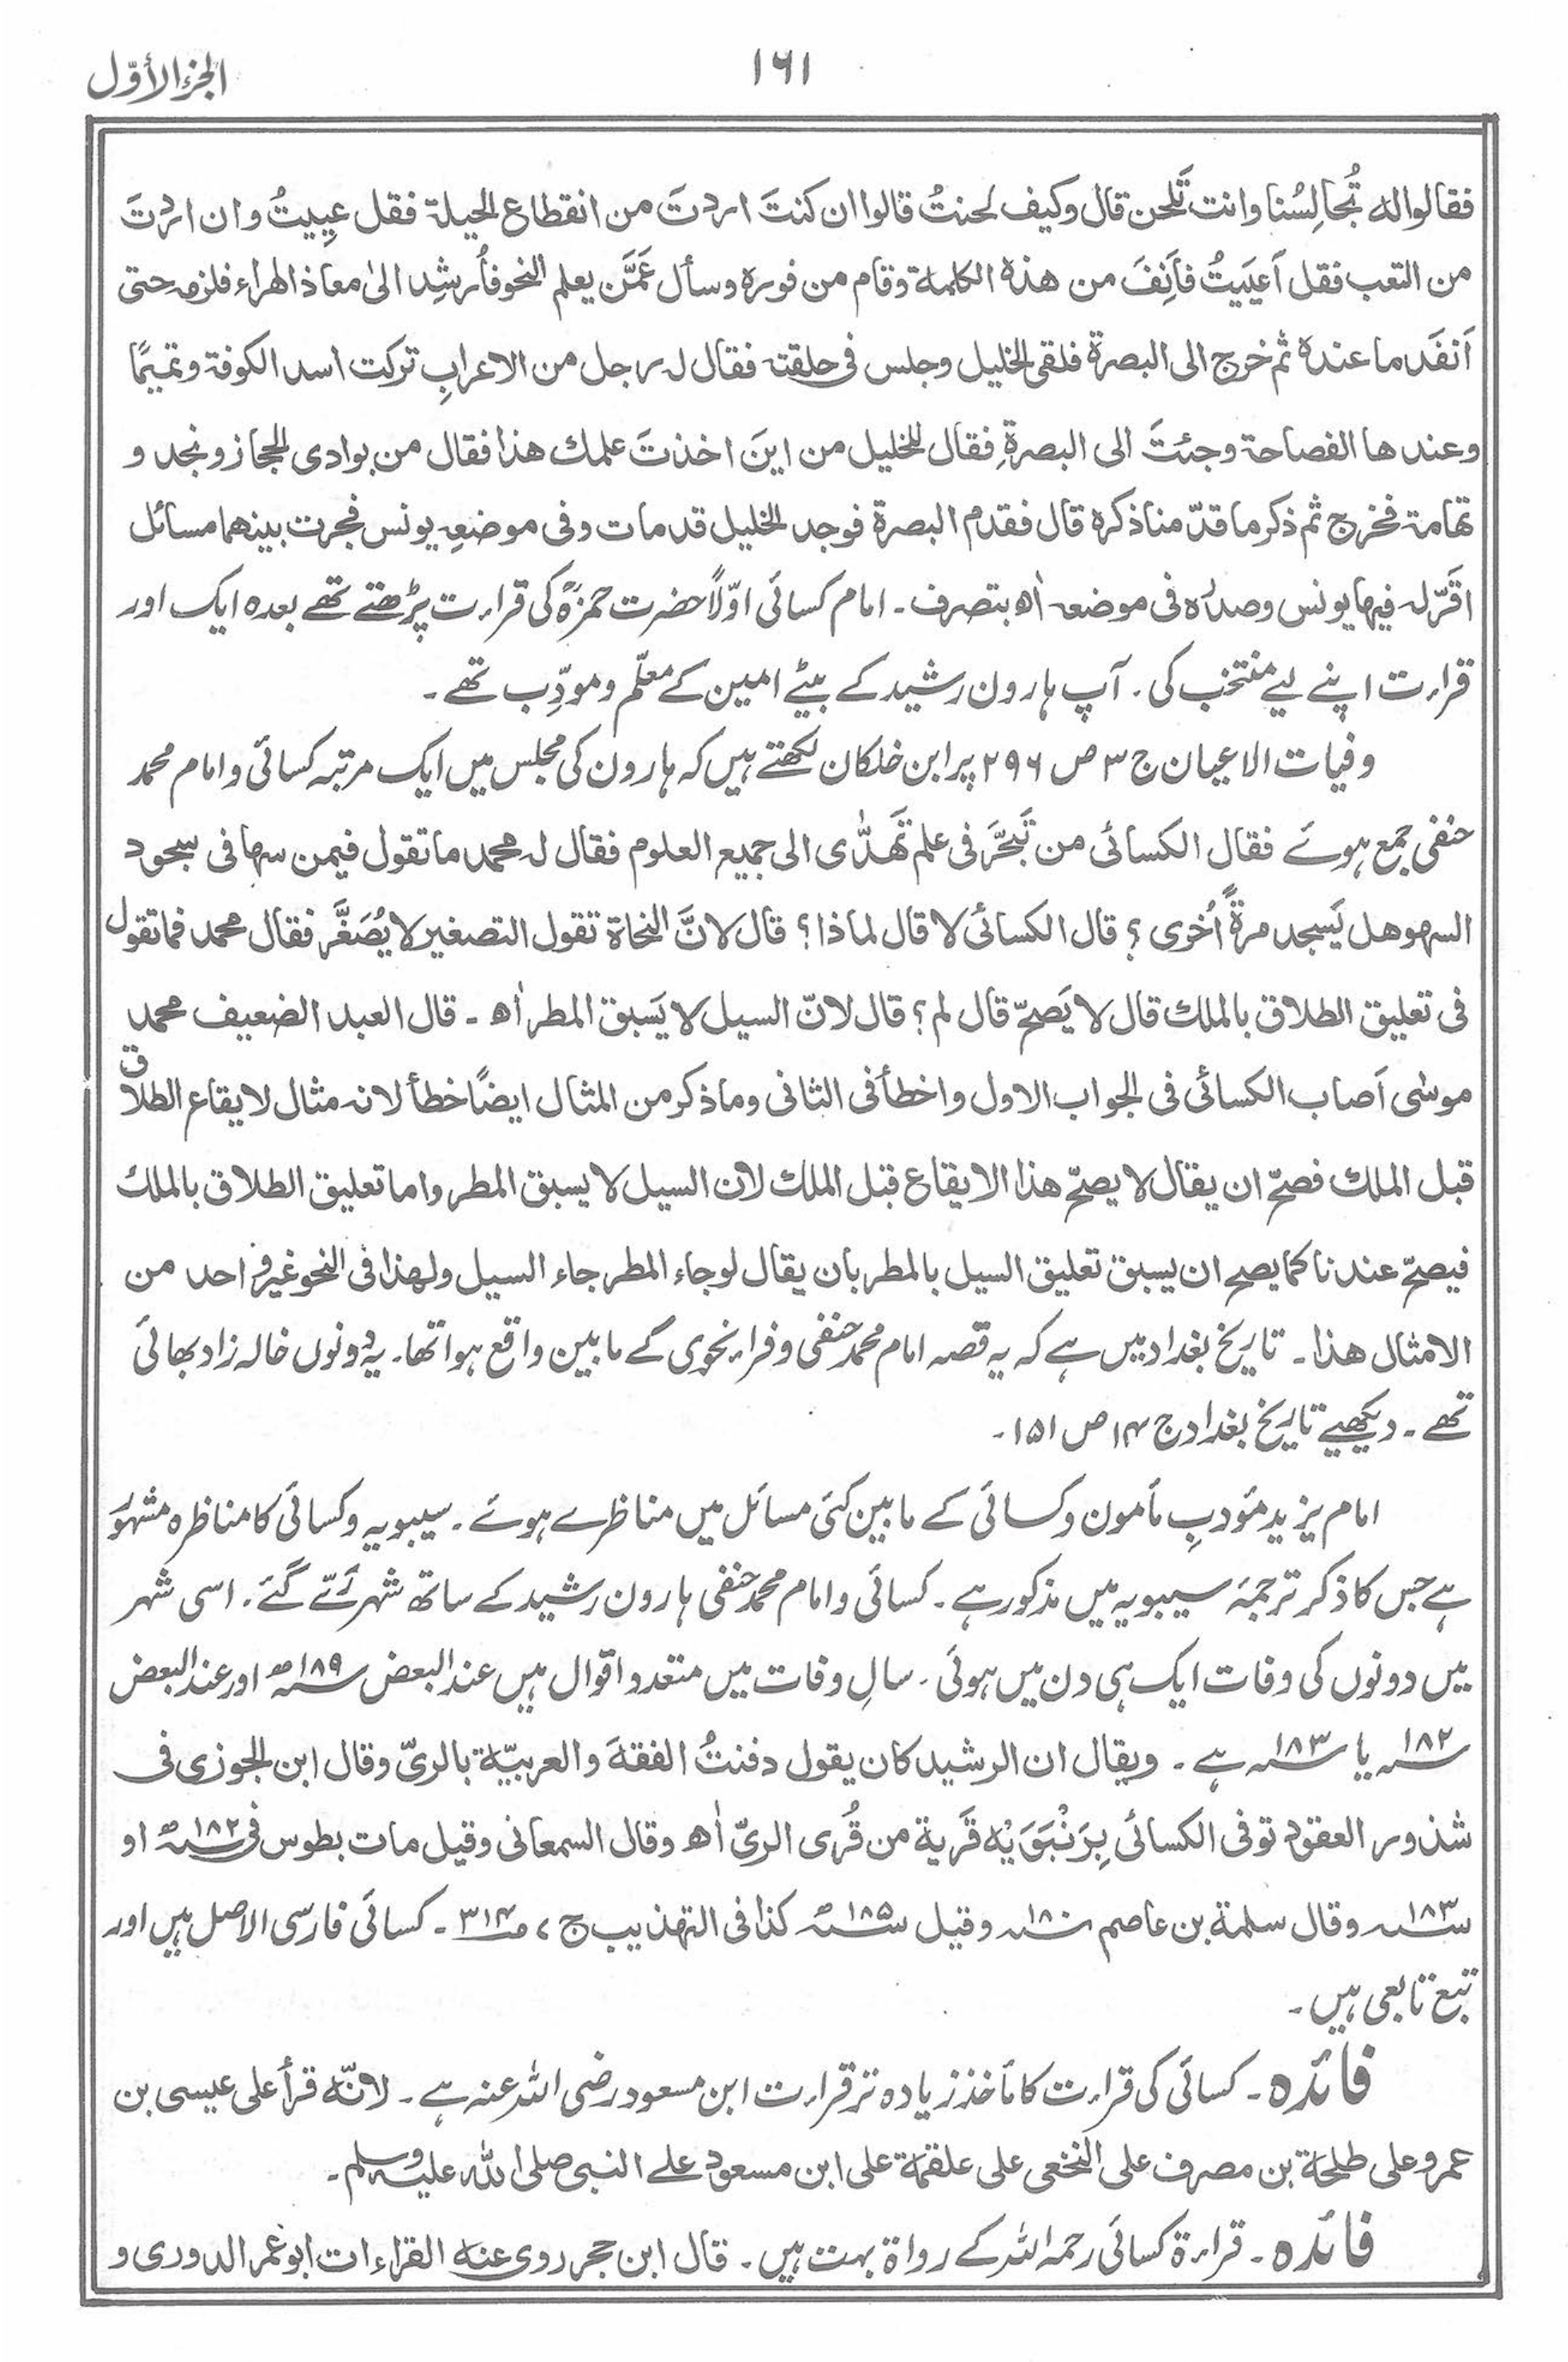 الجزء الأوّل
۱۶۱
فقالوا له تُجالِسُنا وانت تَلحن قال وكيف لحنتُ قالوا ان كنتَ اردتَ من انقطاع الحيلة فقل عيِيتُ وان اردتَ
من التعب فقل اَعيَيتُ فاَنِفَ من هذه الكلمة وقام من فوره وسأل عَمَّن يعلم النحو فاُرشِد الىٰ معاذ الهراء فلزمه حتى
اَنفَد ما عنده ثم خرج الى البصرة فلقى الخليل وجلس فى حلقته فقال له رجل من الاعرابِ تركت اسد الكوفة وتميمًا
وعندها الفصاحة وجئتَ الى البصرةِ فقال للخليل من اينَ اخذتَ علمك هذا فقال من بوادى الحجاز ونجد و
تهامة فخرج ثم ذكر ما قدّمنا ذكره قال فقدم البصرة فوجد الخليل قد مات وفى موضعه يونس فجرت بينهما مسائل
اقرّ له فيها يونس وصدّره فى موضعه اٰه بتصرف ۔ امام کسائی اوّلاً حضرت حمزہؒ کی قراءت پڑھتے تھے بعدہ ایک اور
قراءت اپنے لیے منتخب کی ۔ آپ ہارون رشید کے بیٹے امین کے معلّم و مودِّب تھے ۔
وفیات الاعیان ج ۳ ص ۲۹۶ پر ابن خلکان لکھتے ہیں کہ ہارون کی مجلس میں ایک مرتبہ کسائی و امام محمد
حنفی جمع ہوئے فقال الكسائى من تَبَحَّرَ فى علم تَهَدّٰى الى جميع العلوم فقال له محمد ما تقول فيمن سها فى سجود
السهو هل يَسجد مرةً اُخرى ؟ قال الكسائى لا قال لماذا ؟ قال لانَّ النحاة تقول التصغير لا يُصَغَّر فقال محمد فما تقول
فى تعليق الطلاق بالملك قال لا يَصحّ قال لم ؟ قال لانّ السيل لا يَسبق المطر اٰه ۔ قال العبد الضعيف محمد
موسٰى اَصاب الكسائى فى الجواب الاول واخطأ فى الثانى وما ذكر من المثال ايضًا خطأ لانه مثال لايقاع الطلاق
قبل الملك فصحّ ان يقال لا يصحّ هذا الايقاع قبل الملك لان السيل لا يسبق المطر واما تعليق الطلاق بالملك
فيصحّ عندنا كما يصح ان يسبق تعليق السيل بالمطر بان يقال لو جاء المطر جاء السيل ولهذا فى النحو غير واحد من
الامثال هذا ۔ تاریخ بغداد میں ہے کہ یہ قصہ امام محمد حنفی و فراء نحوی کے مابین واقع ہوا تھا ۔ یہ دونوں خالہ زاد بھائی
تھے ۔ دیکھیے تاریخ بغداد ج ۱۴ ص ۱۵۱ ۔
امام یزید مؤدبِ مأمون و کسائی کے مابین کئی مسائل میں مناظرے ہوئے ۔ سیبویہ و کسائی کا مناظرہ مشہور
ہے جس کا ذکر ترجمۂ سیبویہ میں مذکور ہے ۔ کسائی و امام محمد حنفی ہارون رشید کے ساتھ شہر رَیّ گئے ۔ اسی شہر
میں دونوں کی وفات ایک ہی دن میں ہوئی ۔ سالِ وفات میں متعدد اقوال ہیں عند البعض ۱۸۹ھ اور عند البعض
۱۸۲ یا ۱۸۳ ہے ۔ ويقال ان الرشيد كان يقول دفنتُ الفقهَ والعربيّة بالرىّ وقال ابن الجوزى فى
شذور العقود توفى الكسائى بِرَنْبَوَيْه قَرية من قُرى الرىّ اٰه وقال السمعانى وقيل مات بطوس فى ۱۸۲ھ او
۱۸۳ وقال سلمة بن عاصم ۱۸۰ وقيل ۱۸۵ھ كذا فى التهذيب ج ۷ ص ۳۱۴ ۔ کسائی فارسی الاصل ہیں اور
تبع تابعی ہیں ۔
فائدہ ۔ کسائی کی قراءت کا مأخذ زیادہ تر قراءت ابن مسعود رضی اللہ عنہ ہے ۔ لانّه قرأ على عيسى بن
عمر وعلى طلحة بن مصرف على النخعى على علقمة على ابن مسعود علے النبى صلى الله عليه وسلم ۔
فائدہ ۔ قراءۃ کسائی رحمہ اللہ کے رواۃ بہت ہیں ۔ قال ابن حجر روى عنه القراءات ابو عمر الدورى و